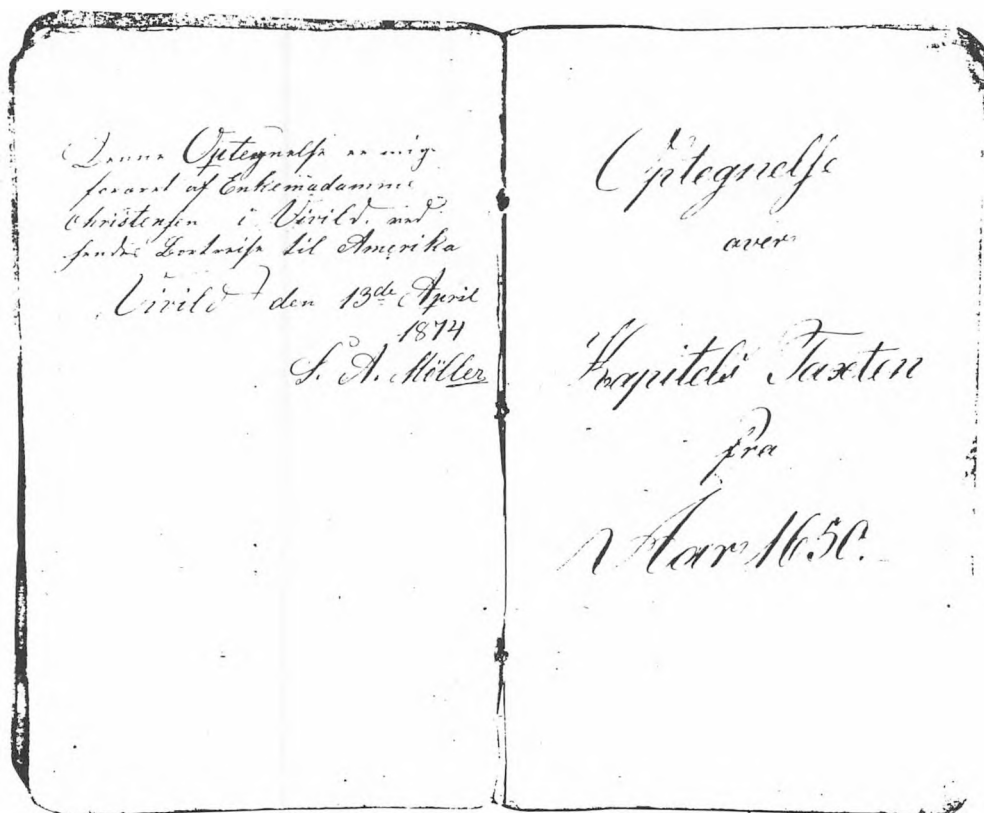 Denne Optegnelse er mig
foræret af Enkemadamme
Christensen i Virild. ved
hendes Bortreise til Amerika
Virild den 13de April
1874
S. A. Möller
Optegnelse
over
Kapitels Taxten
fra
Aar 1650.